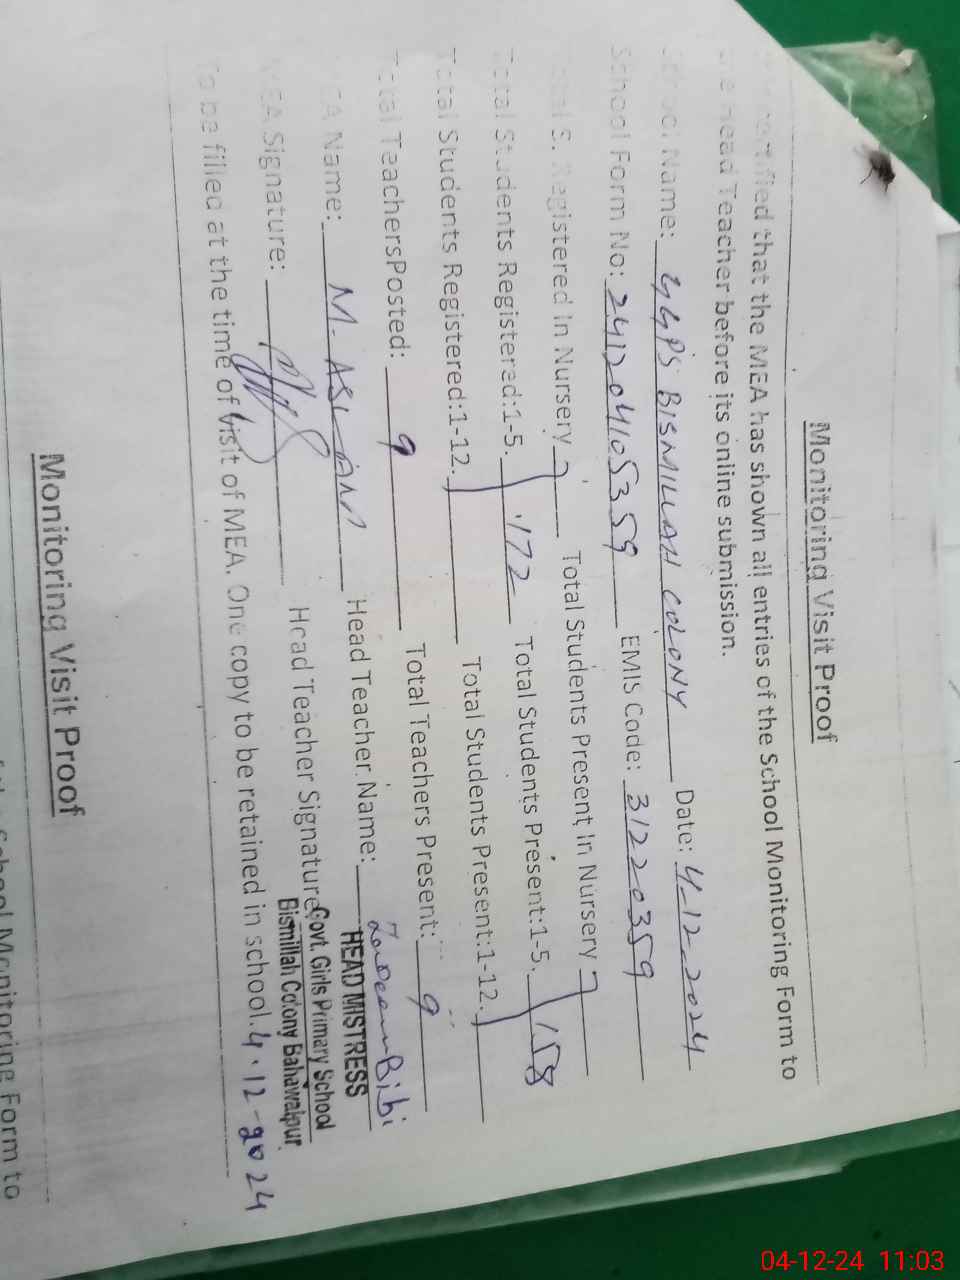 Monitoring Visit Proof
certified that the MEA has shown all entries of the School Monitoring Form to
the Head Teacher before its online submission.
School Name: GGPS BISMILLAH COLONY Date: 4-12-2024
School Form No: 2412041053 59 EMIS Code: 31220359
Total S. Registered In Nursery Total Students Present In Nursery
Total Students Registered:1-5. 172 Total Students Present:1-5. 158
Total Students Registered:1-12. Total Students Present:1-12.
Total TeachersPosted: 9 Total Teachers Present: 9
MEA Name: M. Head Teacher Name: Bibi
MEA Signature: Head Teacher Signature
HEAD MISTRESS
Govt. Girls Primary School
Bismillah Colony Bahawalpur.
To be filled at the time of visit of MEA. One copy to be retained in school. 4.12-2024
Monitoring Visit Proof
School Monitoring Form to
04-12-24 11:03